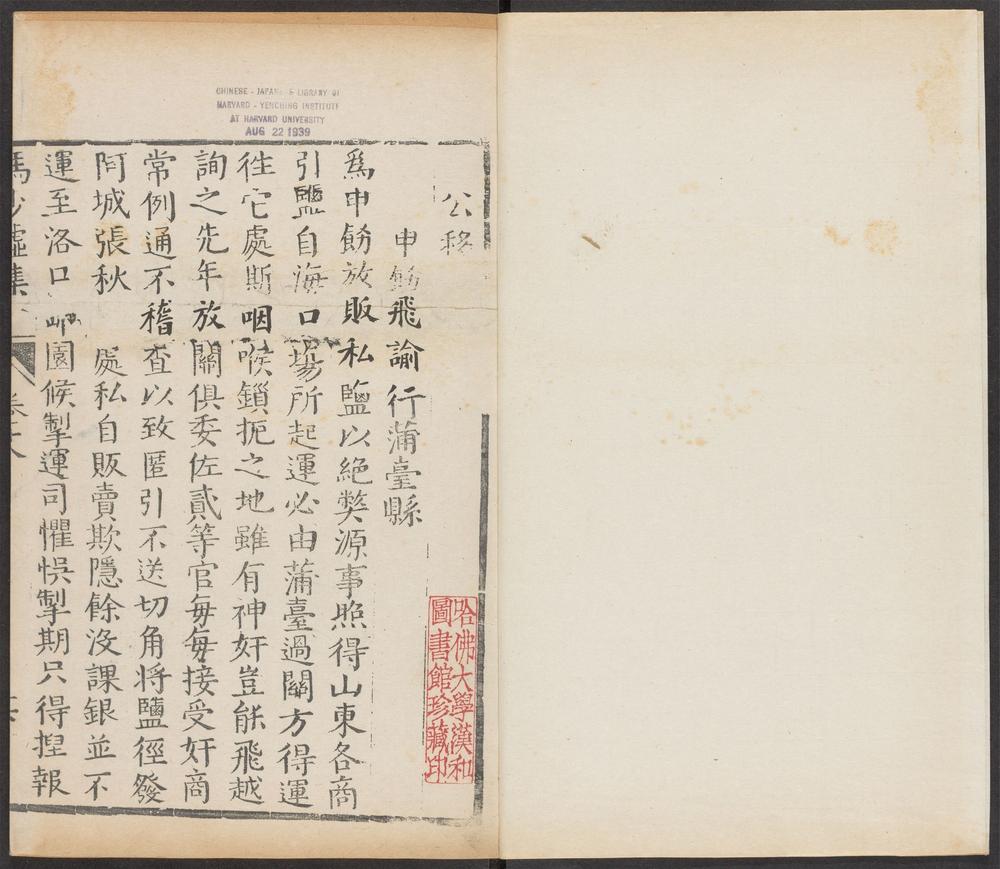 CHINESE - JAPANESE LIBRARY OF
HARVARD - YENCHING INSTITUTE
AT HARVARD UNIVERSITY
AUG 22 1939
公移
申飭飛諭行蒲臺縣
爲申飭放販私鹽以絶獘源事照得山東各商
引鹽自海口場所起運必由蒲臺過關方得運
徃它處斯咽喉鎖扼之地雖有神奸豈能飛越
詢之先年放關俱委佐貳等官每每接受奸商
常例通不稽查以致匿引不送切角将鹽徑發
阿城張秋處私自販賣欺隱餘沒課銀並不
運至洛口園候掣運司懼悞掣期只得揑報
哈佛大學漢和
圖書館珍藏印
馬少墟集